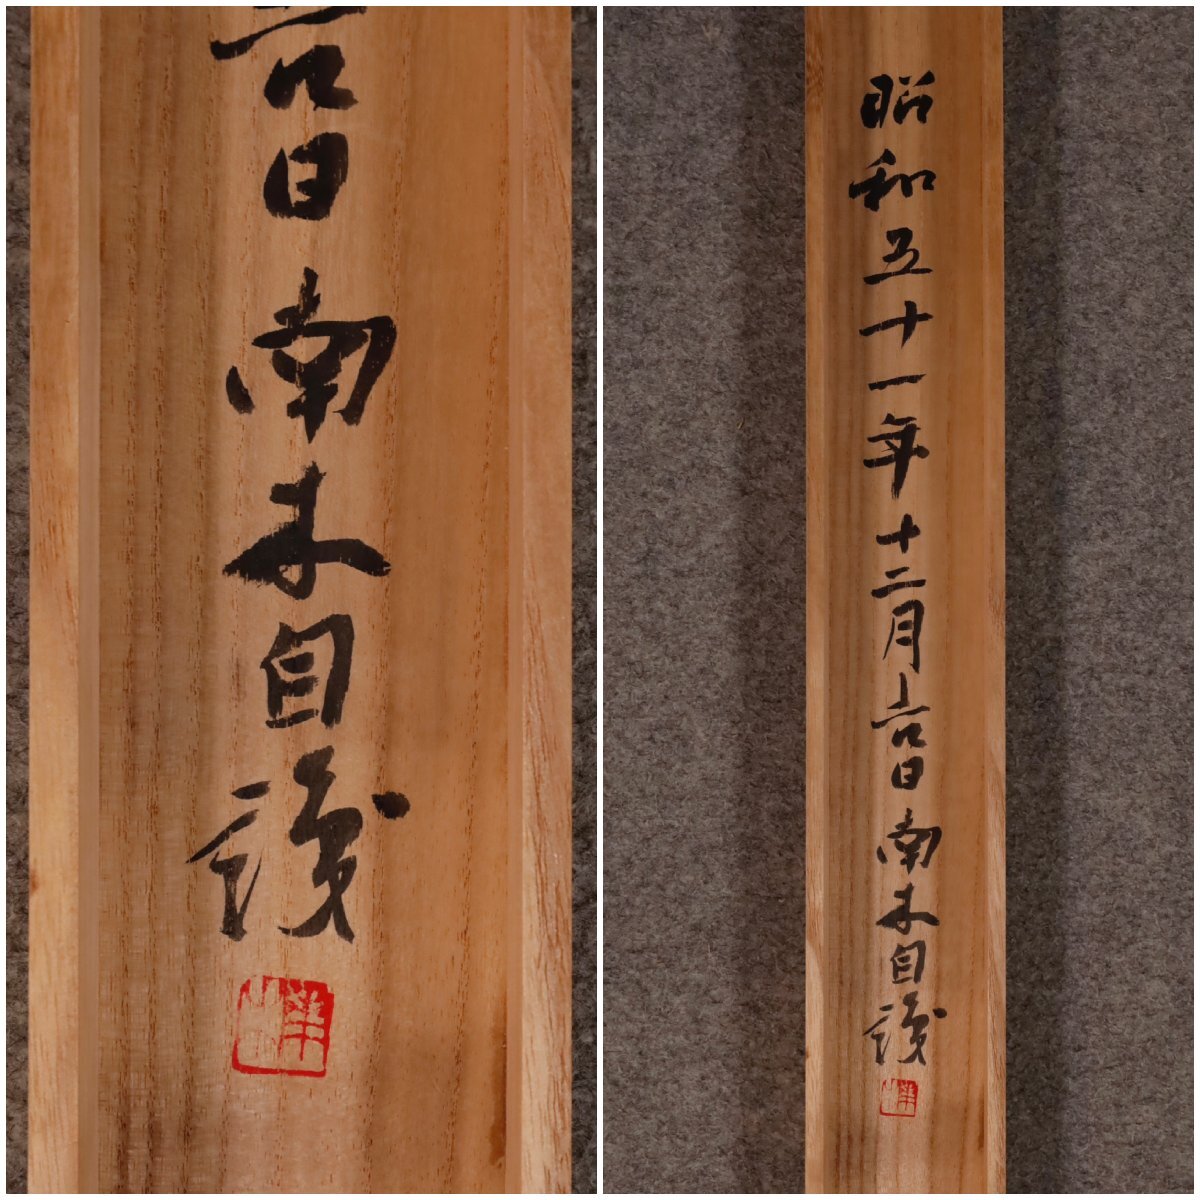 吉日 南木自識
昭和五十一年十二月吉日 南木自識